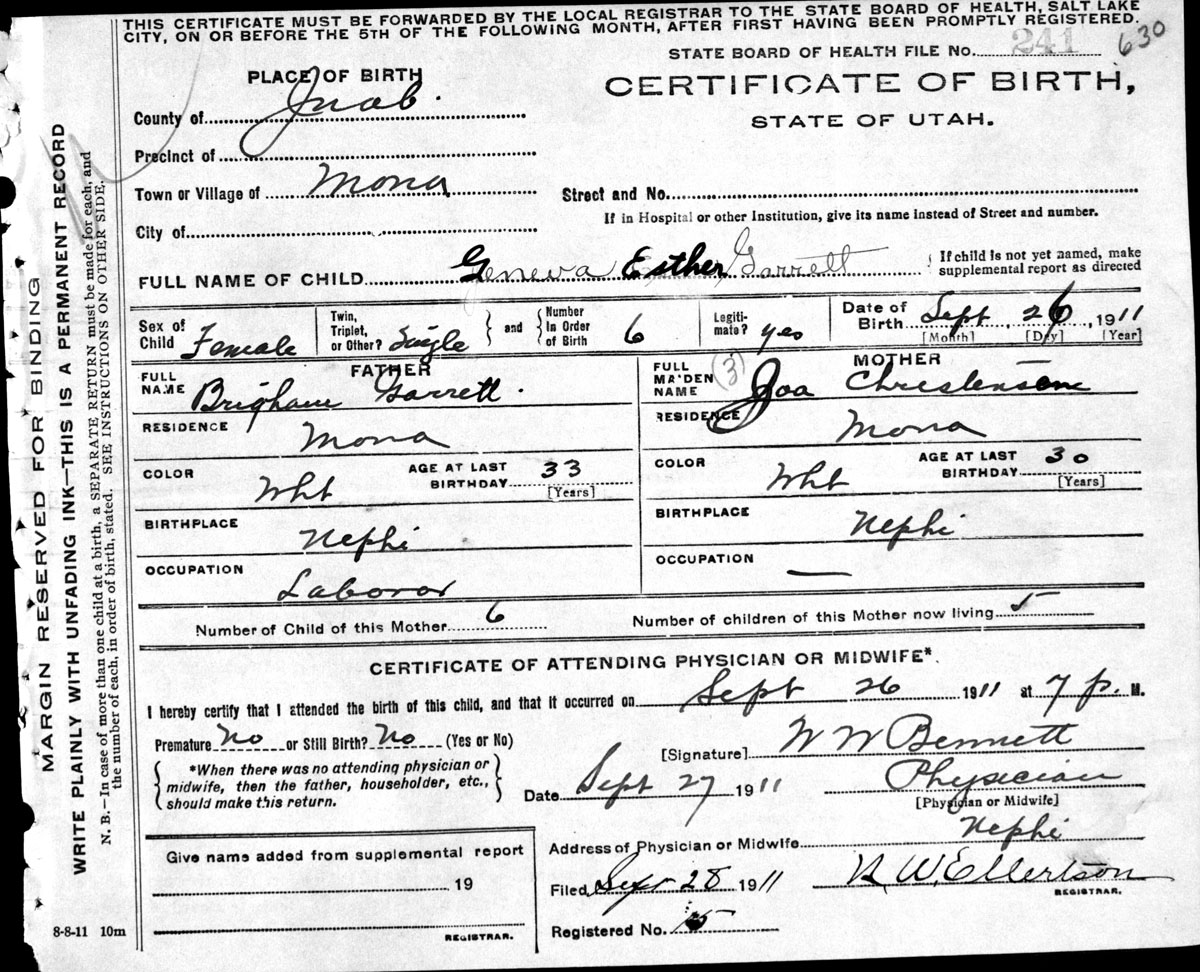 THIS CERTIFICATE MUST BE FORWARDED BY THE LOCAL REGISTRAR TO THE STATE BOARD OF HEALTH, SALT LAKE
CITY, ON OR BEFORE THE 5TH OF THE FOLLOWING MONTH, AFTER FIRST HAVING BEEN PROMPTLY REGISTERED.
STATE BOARD OF HEALTH FILE No. 241 630
PLACE OF BIRTH
CERTIFICATE OF BIRTH,
STATE OF UTAH.
County of Juab.
Precinct of
Town or Village of Mona
Street and No.
If in Hospital or other Institution, give its name instead of Street and number.
City of
FULL NAME OF CHILD Geneva Esther Garrett
If child is not yet named, make
supplemental report as directed
Sex of Child Female
Twin, Triplet, or Other? Single
and
Number In Order of Birth 6
Legitimate? yes
Date of Birth Sept 26, 1911
[Month] [Day] [Year]
FATHER
FULL NAME Brigham Garrett.
RESIDENCE Mona
COLOR Wht
AGE AT LAST BIRTHDAY 33
[Years]
BIRTHPLACE Nephi
OCCUPATION Laboror
MOTHER
(3)
FULL MAIDEN NAME Christensen
RESIDENCE Mona
COLOR Wht
AGE AT LAST BIRTHDAY 30
[Years]
BIRTHPLACE Nephi
OCCUPATION —
Number of Child of this Mother 6
Number of children of this Mother now living 5
CERTIFICATE OF ATTENDING PHYSICIAN OR MIDWIFE*.
I hereby certify that I attended the birth of this child, and that it occurred on Sept 26 1911 at 7 p. M.
Premature No or Still Birth? No (Yes or No)
[Signature] W W Bennett
*When there was no attending physician or
midwife, then the father, householder, etc.,
should make this return.
Date Sept 27 1911
Physician
[Physician or Midwife]
Address of Physician or Midwife Nephi
Give name added from supplemental report
19
REGISTRAR.
Filed Sept 28 1911
W. Ellertson
REGISTRAR.
Registered No.
8-8-11 10m
MARGIN RESERVED FOR BINDING
WRITE PLAINLY WITH UNFADING INK—THIS IS A PERMANENT RECORD
N. B.—In case of more than one child at a birth, a SEPARATE RETURN must be made for each, and
the number of each, in order of birth, stated. SEE INSTRUCTIONS ON OTHER SIDE.